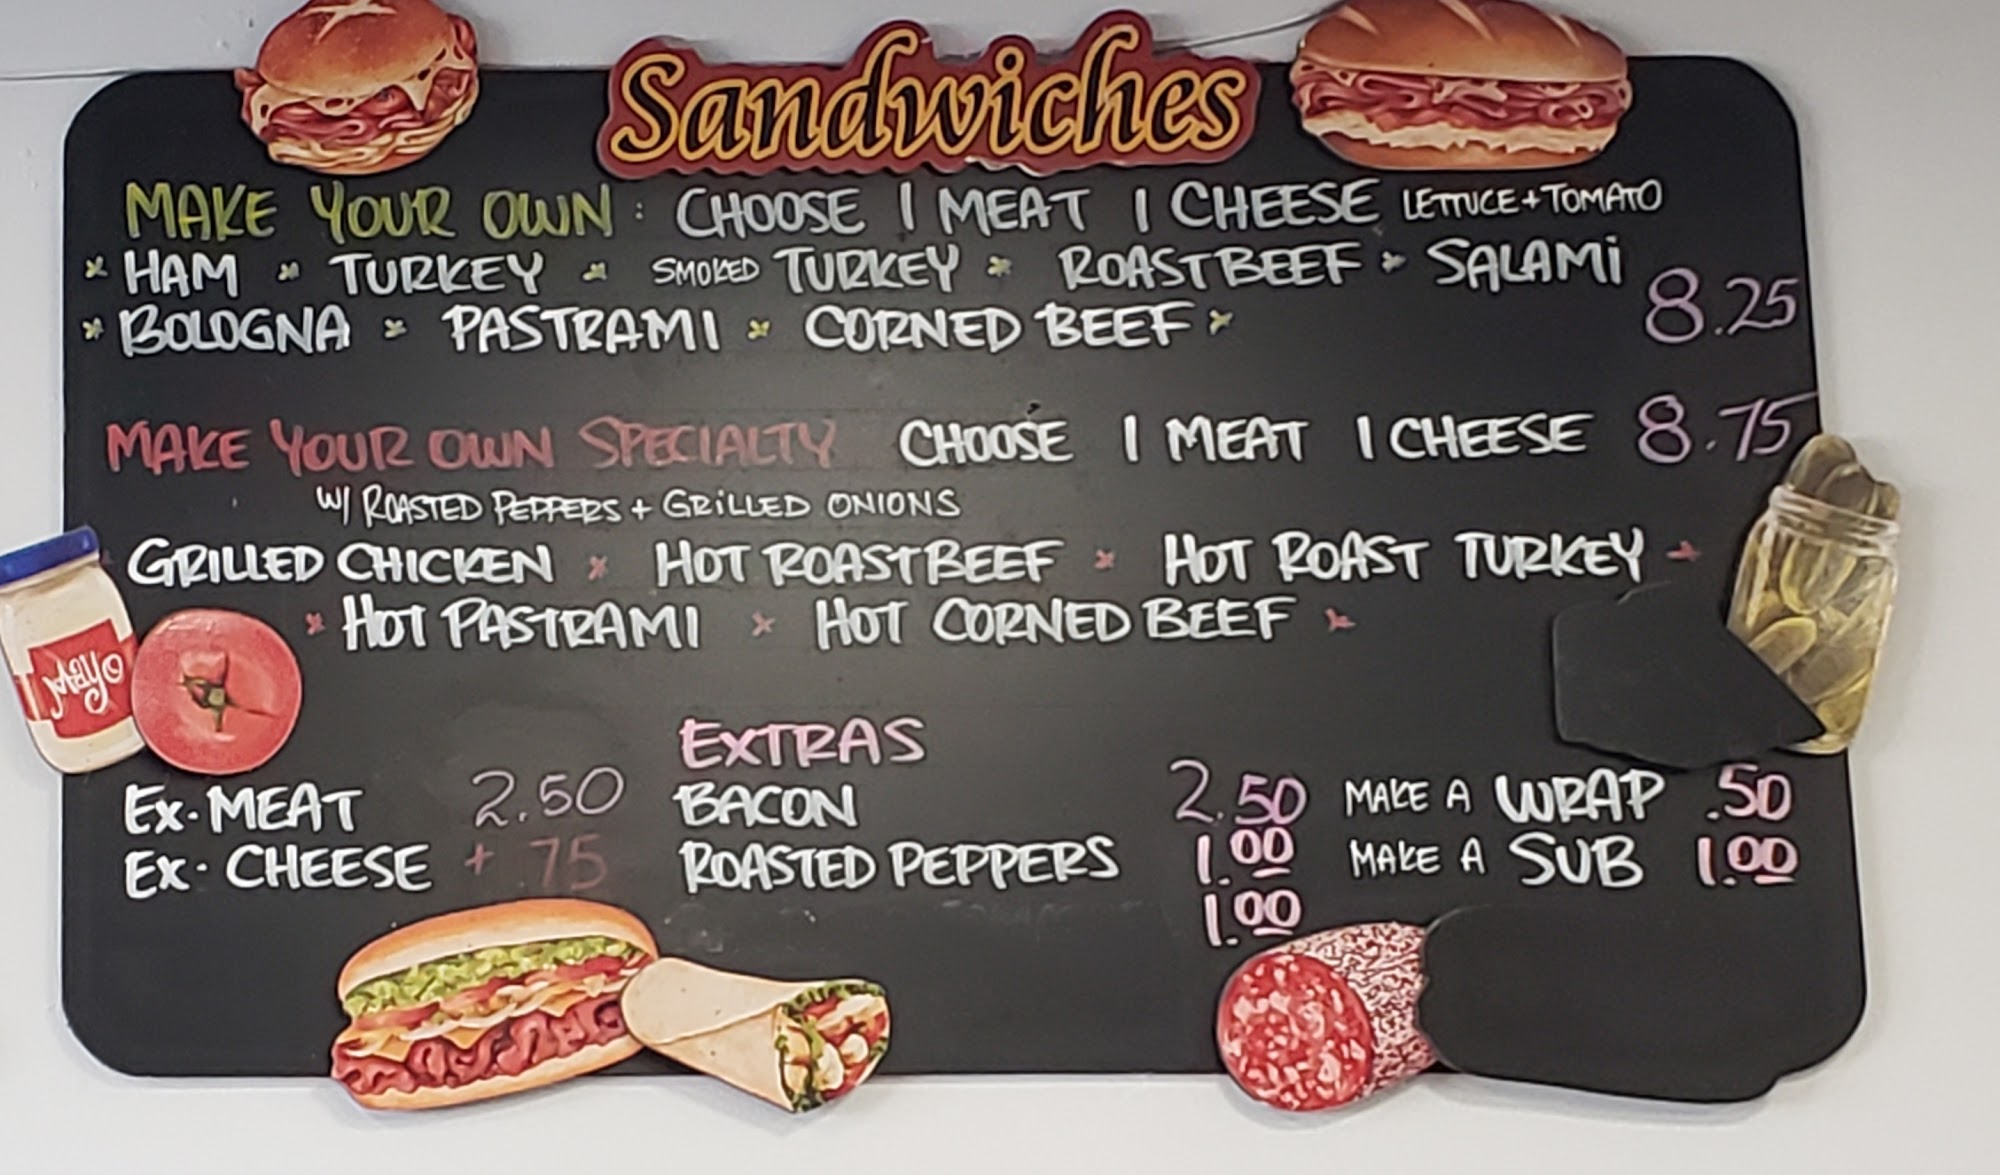 Sandwiches
MAKE YOUR OWN: CHOOSE 1 MEAT 1 CHEESE LETTUCE + TOMATO
HAM TURKEY SMOKED TURKEY ROAST BEEF SALAMI
8.25
BOLOGNA PASTRAMI CORNED BEEF
MAKE YOUR OWN SPECIALTY CHOOSE 1 MEAT 1 CHEESE 8.75
W/ ROASTED PEPPERS + GRILLED ONIONS
GRILLED CHICKEN HOT ROAST BEEF HOT ROAST TURKEY
HOT PASTRAMI HOT CORNED BEEF
Mayo
EXTRAS
Ex. MEAT 2.50 BACON 2.50 MAKE A WRAP .50
Ex. CHEESE + .75 ROASTED PEPPERS 1.00 MAKE A SUB 1.00
1.00